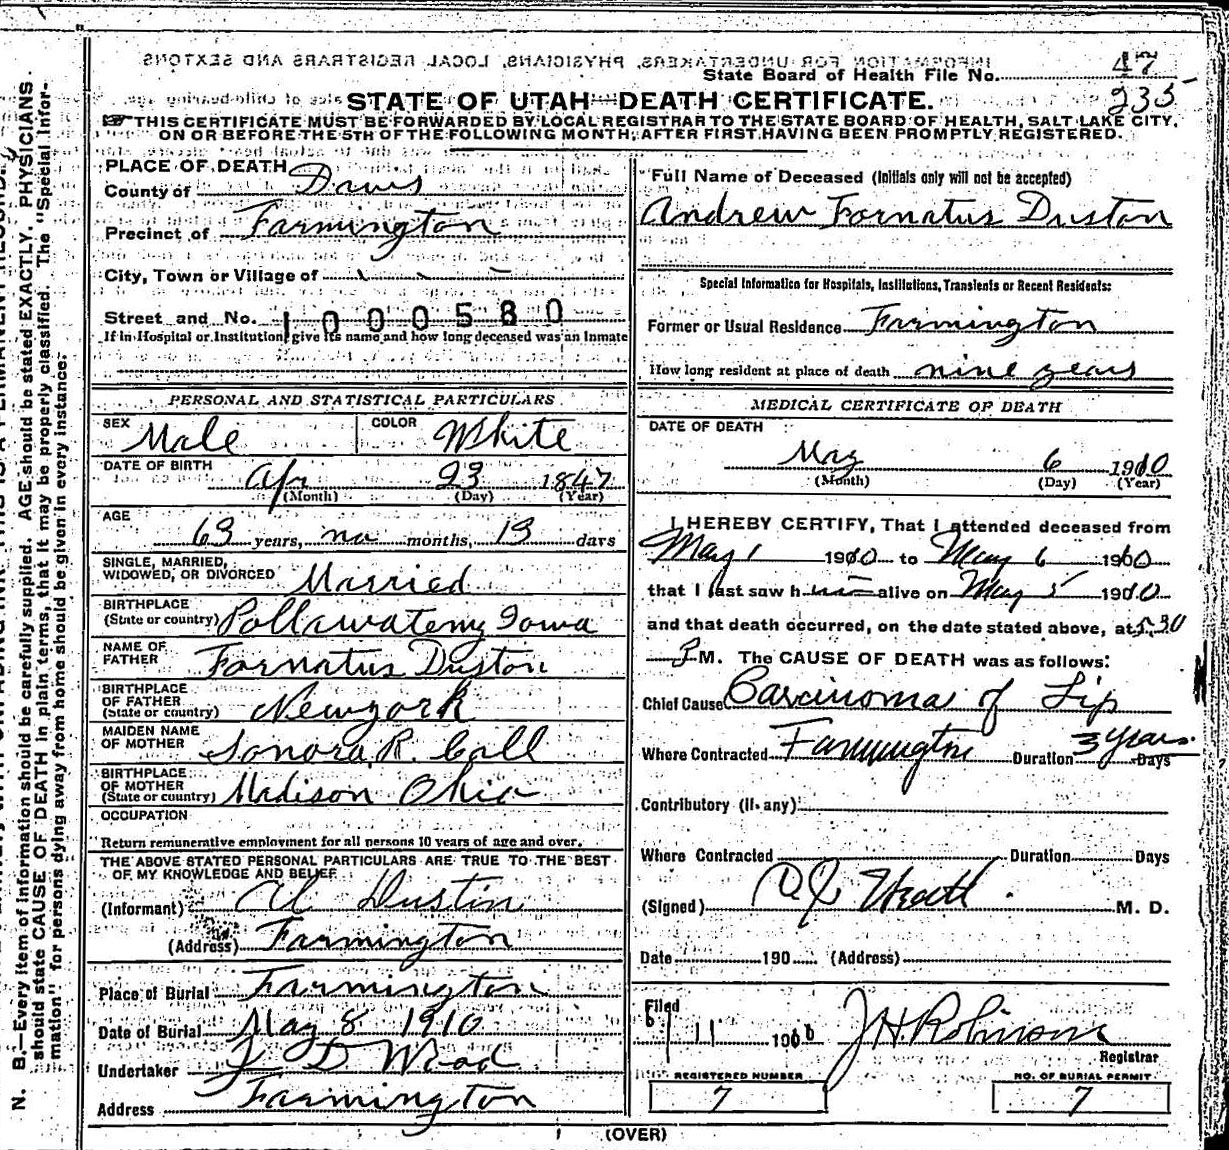 INFORMATION FOR UNDERTAKERS, PHYSICIANS, LOCAL REGISTRARS AND SEXTONS
State Board of Health File No. 47
235
STATE OF UTAH—DEATH CERTIFICATE.
THIS CERTIFICATE MUST BE FORWARDED BY LOCAL REGISTRAR TO THE STATE BOARD OF HEALTH, SALT LAKE CITY,
ON OR BEFORE THE 5TH OF THE FOLLOWING MONTH, AFTER FIRST HAVING BEEN PROMPTLY REGISTERED.
PLACE OF DEATH
County of Davis
Precinct of Farmington
City, Town or Village of
Street and No. 1000580
If in Hospital or Institution, give its name and how long deceased was an Inmate
PERSONAL AND STATISTICAL PARTICULARS
SEX Male COLOR White
DATE OF BIRTH Apr 23 1847
(Month) (Day) (Year)
AGE
63 years, no months, 13 days
SINGLE, MARRIED,
WIDOWED, OR DIVORCED Married
BIRTHPLACE
(State or country) Pottawatemy Iowa
NAME OF
FATHER Fornatus Duston
BIRTHPLACE
OF FATHER
(State or country) Newyork
MAIDEN NAME
OF MOTHER Sonora R. Call
BIRTHPLACE
OF MOTHER
(State or country) Madison Ohio
OCCUPATION
Return remunerative employment for all persons 10 years of age and over.
THE ABOVE STATED PERSONAL PARTICULARS ARE TRUE TO THE BEST
OF MY KNOWLEDGE AND BELIEF
(Informant) Al Dustin
(Address) Farmington
Place of Burial Farmington
Date of Burial May 8 1910
Undertaker J D Wood
Address Farmington
Full Name of Deceased (Initials only will not be accepted)
Andrew Fornatus Duston
Special Information for Hospitals, Institutions, Transients or Recent Residents:
Former or Usual Residence Farmington
How long resident at place of death nine years
MEDICAL CERTIFICATE OF DEATH
DATE OF DEATH
May 6 1910
(Month) (Day) (Year)
I HEREBY CERTIFY, That I attended deceased from
May 1 1910 to May 6 1910
that I last saw h im alive on May 5 1910
and that death occurred, on the date stated above, at 5.30
P M. The CAUSE OF DEATH was as follows:
Chief Cause Carcinoma of Lip
Where Contracted Farmington Duration 3 years Days
Contributory (if any)
Where Contracted Duration Days
(Signed) M. D.
Date 190 (Address)
Filed
6/11 1910 J H Robinson
Registrar
REGISTERED NUMBER
7
NO. OF BURIAL PERMIT
7
(OVER)
N. B.—Every item of information should be carefully supplied. AGE should be stated EXACTLY. PHYSICIANS
should state CAUSE OF DEATH in plain terms, that it may be properly classified. The "Special Infor-
mation" for persons dying away from home should be given in every instance.